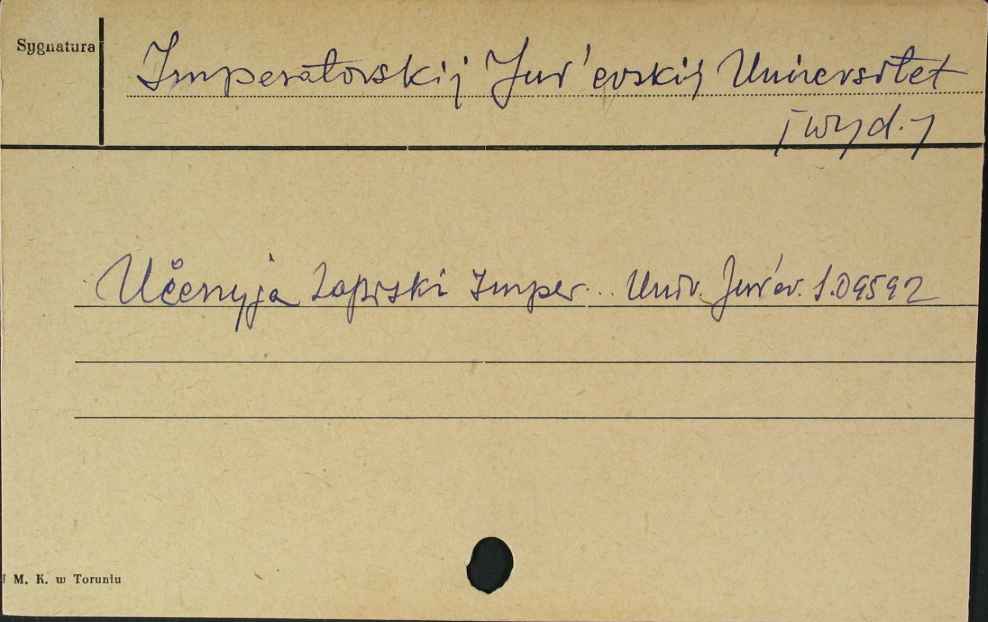 Sygnatura
Imperatorskij Jur'evskij Universitet
[wyd.]
Učenyja Zapiski Imper. Univ. Jur'ev. S.09592
M. K. w Toruniu